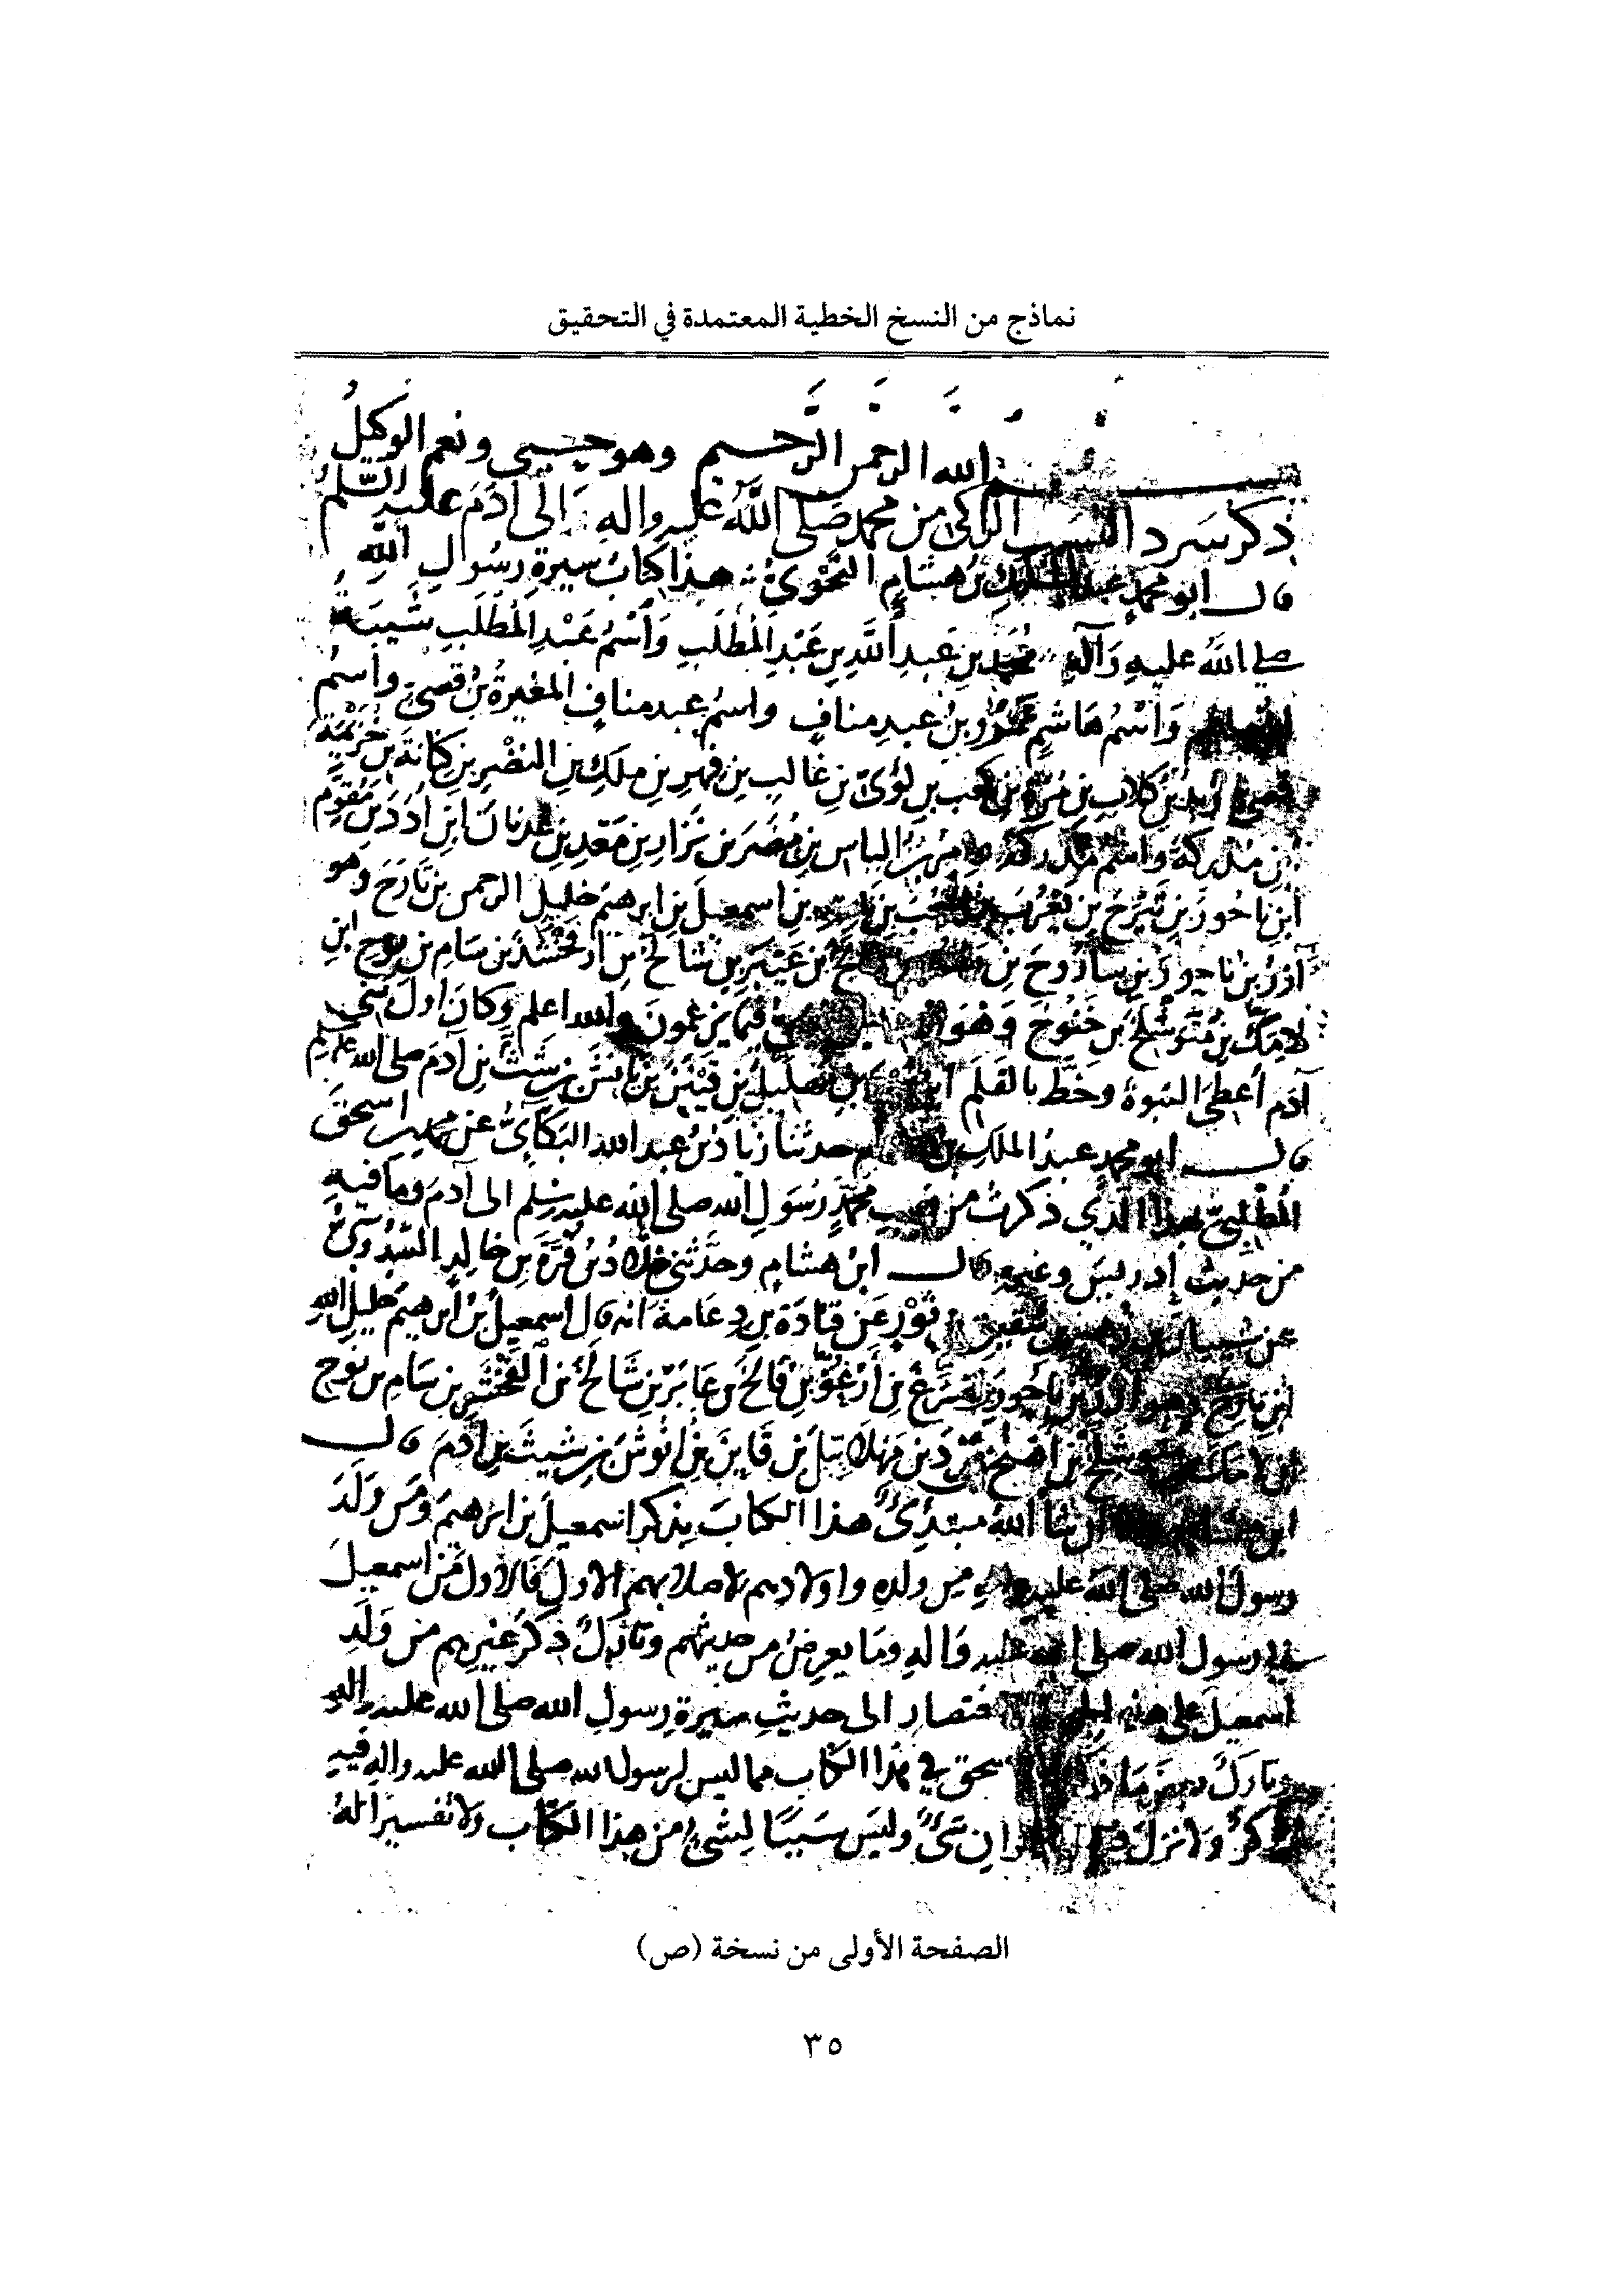 نماذج من النسخ الخطية المعتمدة في التحقيق
الله الرحمن الرحيم وهو حسبي ونعم الوكيل
ذكر سرد النسب الزاكي من محمد صلى الله عليه واله إلى آدم عليه السلم
قال ابو محمد عبد الملك بن هشام النحوي هذا كتاب سيرة رسول الله
صلى الله عليه وآله محمد بن عبد الله بن عبد المطلب واسم عبد المطلب شيبة
واسم هاشم عمرو بن عبد مناف واسم عبد مناف المغيرة بن قصي واسم
قصي زيد بن كلاب بن مرة بن كعب بن لؤي بن غالب بن فهر بن ملك بن النضر بن كنانة بن خزيمة
بن مدركة واسم مدركة الياس بن مضر بن نزار بن معد بن عدنان ابن أدد بن مقوم
ابن ناحور بن تيرح بن يعرب بن يشجب بن بن اسمعيل بن ابرهيم خليل الرحمن بن تارح وهو
آزر بن ناحور بن ساروح بن بن عيبر بن شالخ بن ارفخشذ بن سام بن نوح ابن
لامك بن متوشلخ بن خنوخ وهو فيما يزعمون والله اعلم وكان اول بني
آدم أعطي النبوة وخط بالقلم ابن بن مهليل بن قينن بن يانش بن شث بن آدم صلى الله عليهم
قال ابو محمد عبد الملك بن حدثنا زياد بن عبد الله البكائي عن محمد بن اسحق
المطلبي بهذا الذي ذكرت من نسب محمد رسول الله صلى الله عليه وسلم الى آدم وما فيه
من حديث إدريس وغيره قال ابن هشام وحدثني خلاد بن قرة بن خالد السدوسي
عن شيبان بن زهير بن شقيق بن ثور عن قتادة بن دعامة انه قال اسمعيل بن ابرهيم خليل الله
ابن تارح وهو آزر بن ناحور بن أرغو بن فالخ بن عابر بن شالخ بن الفخشد بن سام بن نوح
ابن لامك بن متوشلخ بن اخنخ بن يرد بن مهلائيل بن قاين بن انوش بن شيث بن آدم قال
ابن هشام ان شا الله مبتدئ هذا الكتاب بذكر اسمعيل بن ابرهيم ومن ولد
رسول الله صلى الله عليه واله من ولده واولادهم لاصلابهم الاول فالاول من اسمعيل
إلى رسول الله صلى الله عليه واله وما يعرض من حديثهم وتارك ذكر غيرهم من ولد
اسمعيل على هذه الجهة للاختصار الى حديث سيرة رسول الله صلى الله عليه واله
وتارك بعض ما ذكر اسحق في هذا الكتاب مما ليس لرسول الله صلى الله عليه واله فيه
ذكر ولا نزل فيه القران شيء وليس سببا لشيء من هذا الكتاب ولا تفسيرا له
الصفحة الأولى من نسخة (ص)
٣٥